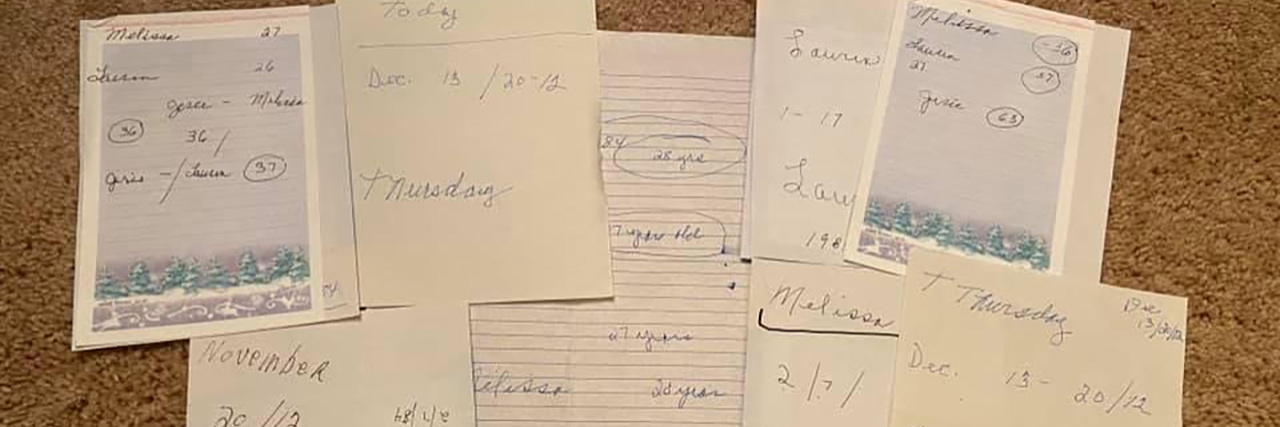 Melissa 27
Lauren 26
Josie - Melissa
36 36/
Josie -/Lauren 37
Today
Dec. 13 /20-12
Thursday
84 28 yrs
7 years old
27 years
28 years
Lauren
1-17
Lau
198
Melissa -36
Lauren
27 -37
Josie 63
November
20/12
2/7/84
Melissa
2/7/
T Thursday
Dec
13/20/12
Dec. 13- 20/12